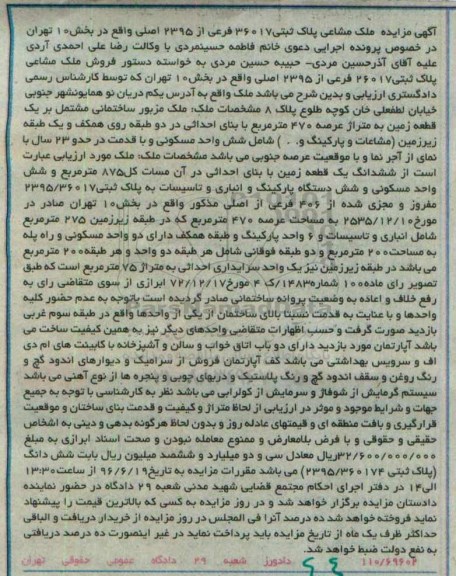 آگهی مزایده ملک مشاعی پلاک ثبتی۳۶۰۱۷ فرعی از ۲۳۹۵ اصلی واقع در بخش۱۰ تهران
در خصوص پرونده اجرایی دعوی خانم فاطمه حسینمردی با وکالت رضا علی احمدی آردی
علیه آقای آذرحسین مردی- حبیبه حسین مردی به خواسته دستور فروش ملک مشاعی
پلاک ثبتی۲۶۰۱۷ فرعی از ۲۳۹۵ اصلی واقع در بخش۱۰ تهران که توسط کارشناس رسمی
دادگستری ارزیابی و بدین شرح می باشد ملک واقع به آدرس یکم دریان نو همایونشهر جنوبی
خیابان لطفعلی خان کوچه طلوع پلاک ۸ مشخصات ملک: ملک مزبور ساختمانی مشتمل بر یک
قطعه زمین به متراژ عرصه ۴۷۰ مترمربع با بنای احداثی در دو طبقه روی همکف و یک طبقه
زیرزمین (مشاعات و پارکینگ و. . ) شامل شش واحد مسکونی و با قدمت در حدود ۲۳ سال با
نمای از آجر نما و با موقعیت عرصه جنوبی می باشد مشخصات ملک: ملک مورد ارزیابی عبارت
است از ششدانگ یک قطعه زمین با بنای احداثی در آن مساحت کل۸۷۵ مترمربع و شش
واحد مسکونی و شش دستگاه پارکینگ و انباری و تاسیسات به پلاک ثبتی۲۳۹۵/۳۶۰۱۷
مفروز و مجزی شده از ۴۰۶ فرعی از اصلی مذکور واقع در بخش۱۰ تهران صادر در
مورخ۲۵۳۵/۱۲/۱۰ به مساحت عرصه ۴۷۰ مترمربع که در طبقه زیرزمین ۲۷۵ مترمربع
شامل انباری و تاسیسات و ۶ واحد پارکینگ و طبقه همکف دارای دو واحد مسکونی و راه پله
به مساحت۲۰۰ مترمربع و دو طبقه فوقانی شامل هر طبقه دو واحد و هر طبقه۲۰۰ مترمربع
می باشد در طبقه زیرزمین نیز یک واحد سرایداری احداثی به متراژ ۷۵ مترمربع است که طبق
تصویر رای ماده۱۰۰ شماره۱۱۴۸۳/ک ۴ مورخ۷۲/۱۲/۱۷ ابرازی از سوی متقاضی رای به
رفع خلاف و اعاده به وضعیت پروانه ساختمانی صادر گردیده است باتوجه به عدم حضور کلیه
واحدها و با عنایت به قدمت نسبتا بالای ساختمان از یکی از واحدها واقع در طبقه سوم غربی
بازدید صورت گرفت و حسب اظهارات متقاضی واحدهای دیگر نیز به همین کیفیت ساخت می
باشد آپارتمان مورد بازدید دارای دو باب اتاق خواب و سالن و آشپزخانه با کابینت های ام دی
اف و سرویس بهداشتی می باشد کف آپارتمان فروش از سرامیک و دیوارهای اندود گچ و
رنگ روغن و سقف اندود گچ و رنگ پلاستیک و دربهای چوبی و پنجره ها از نوع آهنی می باشد
سیستم گرمایش از شوفاژ و سرمایش از کولرآبی می باشد نظر به کارشناسی با توجه به جمیع
جهات و شرایط موجود و موثر در ارزیابی از لحاظ متراژ و کیفیت و قدمت بنای ساختان و موقعیت
قرارگیری و بافت منطقه ای و قیمتهای عادله روز و بدون لحاظ هرگونه بدهی و دینی به اشخاص
حقیقی و حقوقی و با فرض بلامعارض و ممنوع معامله نبودن و صحت اسناد ابرازی به مبلغ
۳۲/۶۰۰/۰۰۰/۰۰۰ریال معادل سی و دو میلیارد و ششصد میلیون ریال بابت شش دانگ
(پلاک ثبتی ۲۳۹۵/۳۶۰۱۷۴) می باشد مقررات مزایده به تاریخ۹۶/۶/۱۹ از ساعت۱۳:۳۰
الی۱۴ در دفتر اجرای احکام مجتمع قضایی شهید مدنی شعبه ۲۹ دادگاه در حضور نماینده
دادستان مزایده برگزار خواهد شد و در روز مزایده به کسی که بالاترین قیمت را پیشنهاد
نماید فروخته خواهد شد ده درصد آنرا فی المجلس در روز مزایده از خریدار دریافت و الباقی
حداکثر ظرف یک ماه از تاریخ مزایده باید پرداخت نماید در غیر اینصورت ده درصد دریافتی
به نفع دولت ضبط خواهد شد.
۱۱۰/۶۹۶۰۲ دادورز شعبه ۲۹ دادگاه عمومی حقوقی تهران